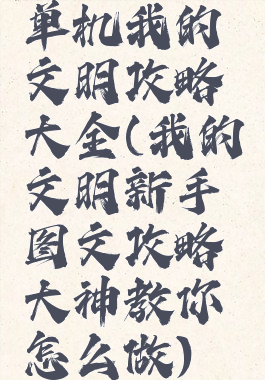 单机我的
文明攻略
大全(我的
文明新手
图文攻略
大神教你
怎么做)